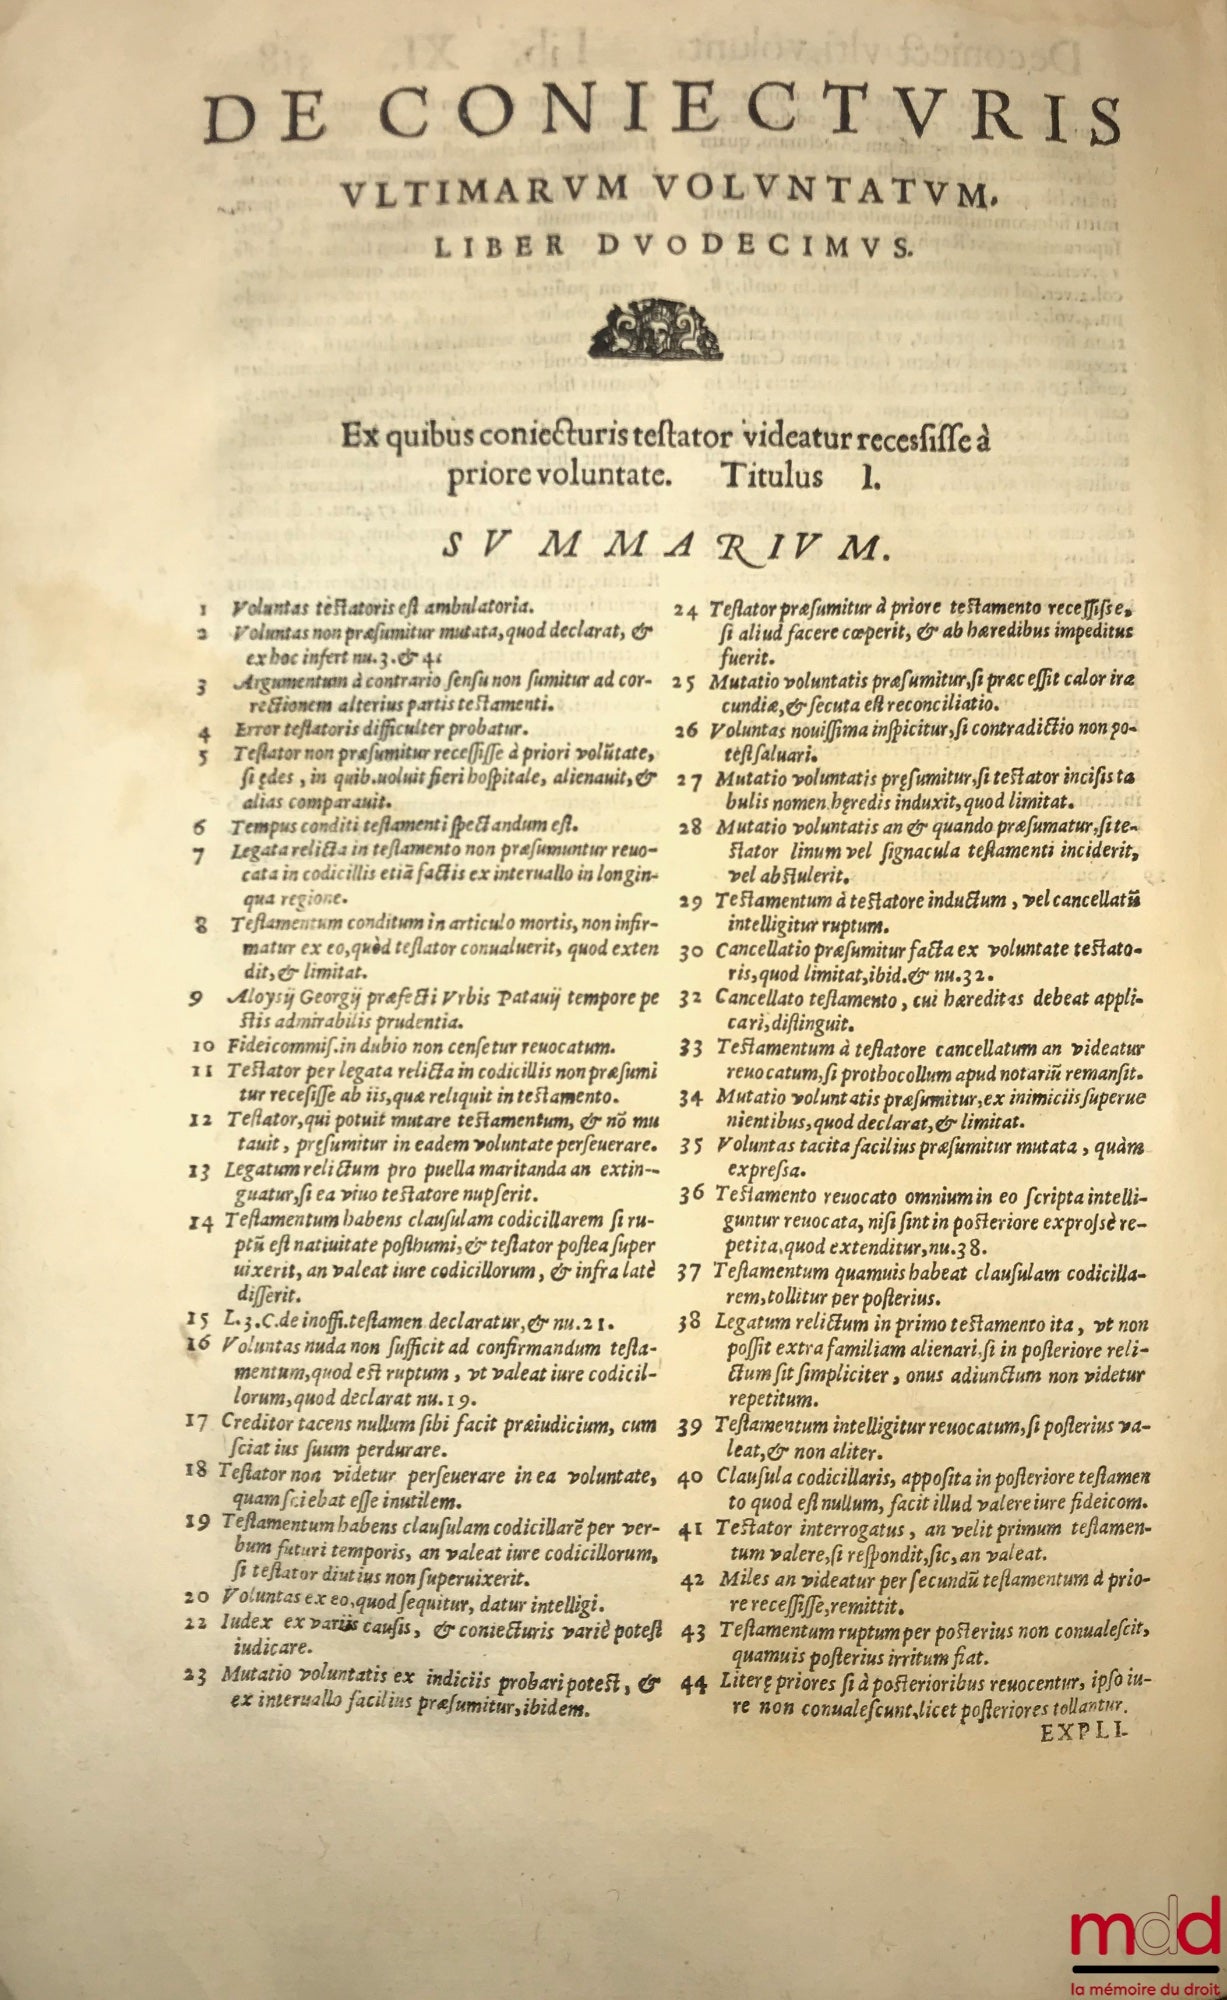 DE CONIECTVRIS
VLTIMARVM VOLVNTATVM.
LIBER DVODECIMVS.
Ex quibus coniecturis testator videatur recessisse à
priore voluntate. Titulus I.
SVMMARIVM.
1 Voluntas testatoris est ambulatoria.
2 Voluntas non præsumitur mutata, quod declarat, &
ex hoc infert nu. 3. & 4.
3 Argumentum à contrario sensu non sumitur ad cor-
rectionem alterius partis testamenti.
4 Error testatoris difficulter probatur.
5 Testator non præsumitur recessisse à priori volūtate,
si ędes, in quib. uoluit fieri hospitale, alienauit, &
alias comparauit.
6 Tempus conditi testamenti spectandum est.
7 Legata relicta in testamento non præsumuntur reuo-
cata in codicillis etiā factis ex interuallo in longin-
qua regione.
8 Testamentum conditum in articulo mortis, non infir-
matur ex eo, quòd testator conualuerit, quod exten
dit, & limitat.
9 Aloysij Georgij præfecti Vrbis Patauij tempore pe
stis admirabilis prudentia.
10 Fideicommis. in dubio non censetur reuocatum.
11 Testator per legata relicta in codicillis non præsumi
tur recesisse ab iis, quæ reliquit in testamento.
12 Testator, qui potuit mutare testamentum, & nō mu
tauit, pręsumitur in eadem voluntate perseuerare.
13 Legatum relictum pro puella maritanda an extin-
guatur, si ea viuo testatore nupserit.
14 Testamentum habens clausulam codicillarem si ru-
ptū est natiuitate posthumi, & testator postea super
uixerit, an valeat iure codicillorum, & infra latè
disserit.
15 L. 3. C. de inoffi. testamen declaratur, & nu. 21.
16 Voluntas nuda non sufficit ad confirmandum testa-
mentum, quod est ruptum, vt valeat iure codicil-
lorum, quod declarat nu. 19.
17 Creditor tacens nullum sibi facit præiudicium, cum
sciat ius suum perdurare.
18 Testator non videtur perseuerare in ea voluntate,
quam sciebat esse inutilem.
19 Testamentum habens clausulam codicillarē per ver-
bum futuri temporis, an valeat iure codicillorum,
si testator diutius non superuixerit.
20 Voluntas ex eo, quod sequitur, datur intelligi.
22 Iudex ex variis causis, & coniecturis variè potest
iudicare.
23 Mutatio voluntatis ex indiciis probari potest, &
ex interuallo facilius præsumitur, ibidem.
24 Testator præsumitur à priore testamento recessisse,
si aliud facere cœperit, & ab hæredibus impeditus
fuerit.
25 Mutatio voluntatis præsumitur, si præcessit calor ira
cundiæ, & secuta est reconciliatio.
26 Voluntas nouissima inspicitur, si contradictio non po-
test saluari.
27 Mutatio voluntatis pręsumitur, si testator incisis ta
bulis nomen hęredis induxit, quod limitat.
28 Mutatio voluntatis an & quando præsumatur, si te-
stator linum vel signacula testamenti inciderit,
vel abstulerit.
29 Testamentum à testatore inductum, vel cancellatū
intelligitur ruptum.
30 Cancellatio præsumitur facta ex voluntate testato-
ris, quod limitat, ibid. & nu. 32.
32 Cancellato testamento, cui hæreditas debeat appli-
cari, distinguit.
33 Testamentum à testatore cancellatum an videatur
reuocatum, si prothocollum apud notariū remansit.
34 Mutatio voluntatis præsumitur, ex inimiciis superue
nientibus, quod declarat, & limitat.
35 Voluntas tacita facilius præsumitur mutata, quàm
expressa.
36 Testamento reuocato omnium in eo scripta intelli-
guntur reuocata, nisi sint in posteriore exprossè re-
petita, quod extenditur, nu. 38.
37 Testamentum quamuis habeat clausulam codicilla-
rem, tollitur per posterius.
38 Legatum relictum in primo testamento ita, vt non
possit extra familiam alienari, si in posteriore reli-
ctum sit simpliciter, onus adiunctum non videtur
repetitum.
39 Testamentum intelligitur reuocatum, si posterius va-
leat, & non aliter.
40 Clausula codicillaris, apposita in posteriore testamen
to quod est nullum, facit illud valere iure fideicom.
41 Testator interrogatus, an velit primum testamen-
tum valere, si respondit, sic, an valeat.
42 Miles an videatur per secundū testamentum à prio-
re recessisse, remittit.
43 Testamentum ruptum per posterius non conualescit,
quamuis posterius irritum fiat.
44 Literę priores si à posterioribus reuocentur, ipso iu-
re non conualescunt, licet posteriores tollantur.
EXPLI-
mdd
la mémoire du droit